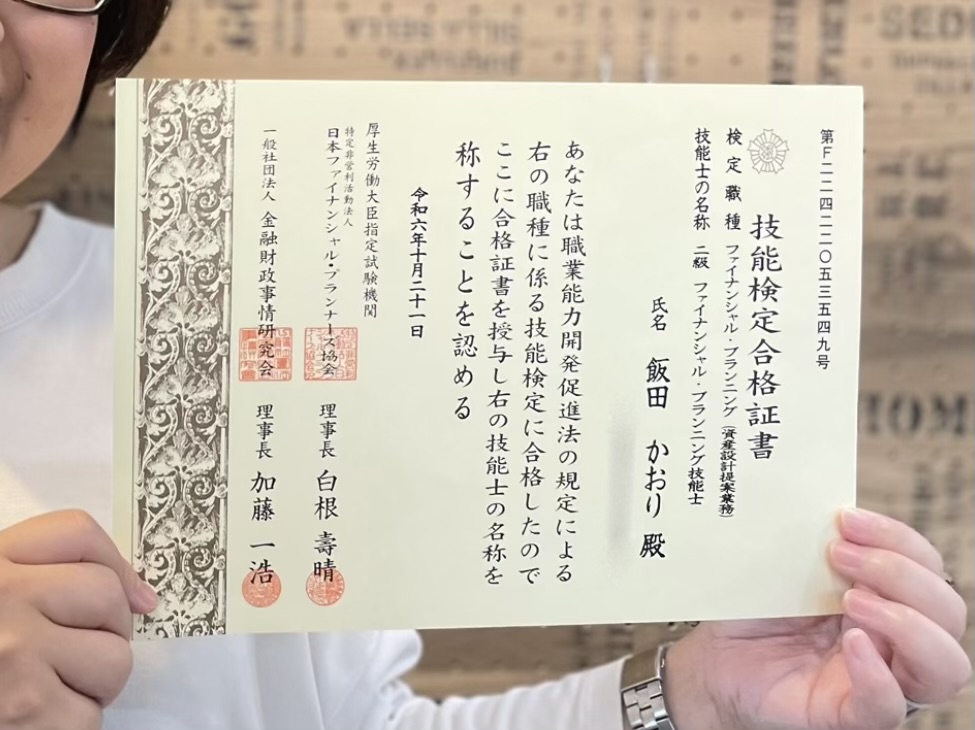 第F二二四二二〇五三五四九号
技能検定合格証書
検定職種 ファイナンシャル・プランニング(資産設計提案業務)
技能士の名称 二級 ファイナンシャル・プランニング技能士
氏名 飯田 かおり 殿
あなたは職業能力開発促進法の規定による
右の職種に係る技能検定に合格したので
ここに合格証書を授与し右の技能士の名称を
称することを認める
令和六年十月二十一日
厚生労働大臣指定試験機関
特定非営利活動法人
日本ファイナンシャル・プランナーズ協会 理事長 白根 壽晴
一般社団法人 金融財政事情研究会 理事長 加藤 一浩